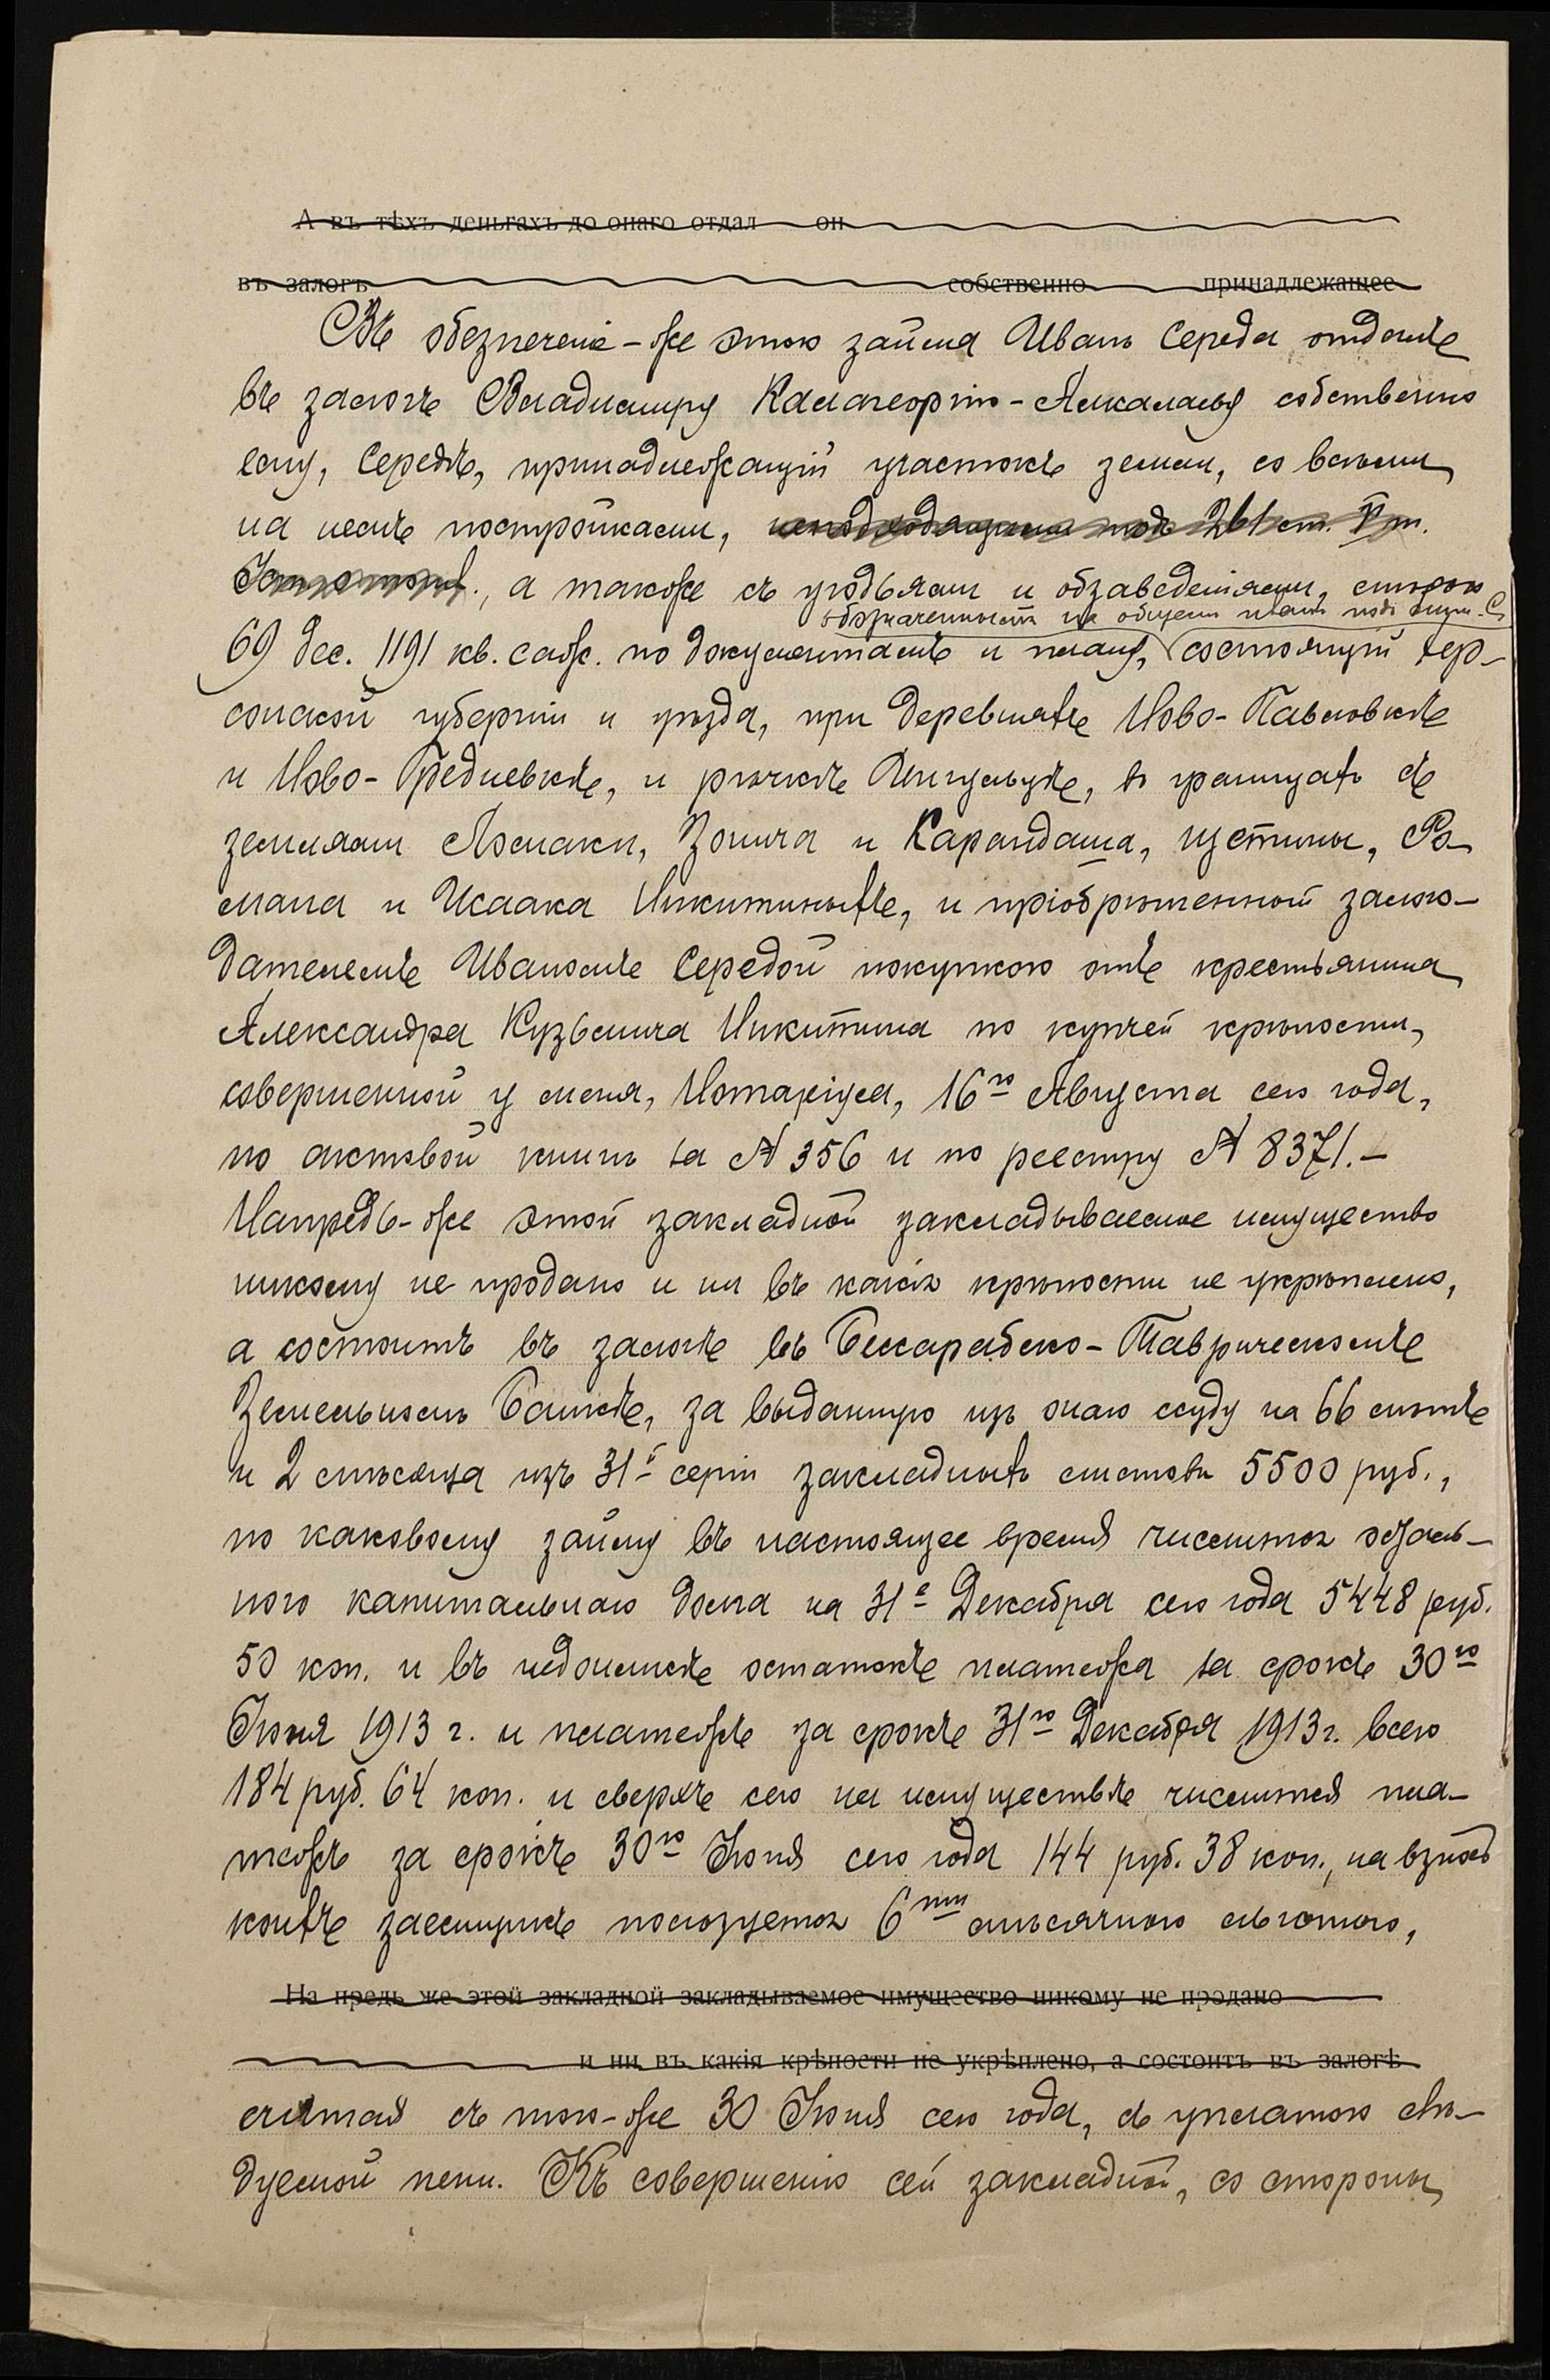 А въ тѣхъ деньгахъ до онаго отдал он
въ залогъ собственно принадлежащее
Въ обезпеченіе-же этого займа Иванъ Середа отдалъ
въ залогъ Владиміру Калагеоргію-Алкалаеву собственно
ему, Середѣ, принадлежащій участокъ земли, со всѣми
на немъ постройками, неподходящими подъ 261 ст. V т.
а также съ угодьями и обзаведеніями, мѣрою
обозначенный на общемъ планѣ подъ лит. С,
69 дес. 1191 кв. саж. по документамъ и плану, состоящій Хер-
сонской губерніи и уѣзда, при деревняхъ Ново-Павловкѣ
и Ново-Гредневкѣ, и рѣчкѣ Ингульцѣ, въ границахъ съ
землями Ломаки, Зонича и Карандаша, Устины, Ро-
мана и Исаака Никитиныхъ, и пріобрѣтенной залого-
дателемъ Иваномъ Середой покупкою отъ крестьянина
Александра Кузьмича Никитина по купчей крѣпости,
совершенной у меня, Нотаріуса, 16го Августа сего года,
по актовой книгѣ за № 356 и по реестру № 8371.-
Напредь-же этой закладной закладываемое имущество
никому не продано и ни въ какія крѣпости не укрѣплено,
а состоитъ въ залогѣ въ Бессарабско-Таврическомъ
Земельномъ Банкѣ, за выданную изъ онаго ссуду на 66 лѣтъ
и 2 мѣсяца изъ 31й серіи закладныхъ листовъ 5500 руб.,
по каковому займу въ настоящее время числится осталь-
ного капитальнаго долга на 31е Декабря сего года 5448 руб.
50 коп. и въ недоимкѣ остатокъ платежа за срокъ 30го
Іюня 1913 г. и платежъ за срокъ 31го Декабря 1913 г. всего
184 руб. 64 коп. и сверхъ сего на имуществѣ числится пла-
тежъ за срокъ 30го Іюня сего года 144 руб. 38 коп., на взносъ
коихъ заемщикъ пользуется 6ти мѣсячною льготою,
На предь же этой закладной закладываемое имущество никому не продано
и ни въ какія крѣпости не укрѣплено, а состоитъ въ залогѣ
считая съ того-же 30 Іюня сего года, съ уплатою слѣ-
дуемой пени. Къ совершенію сей закладной, со стороны